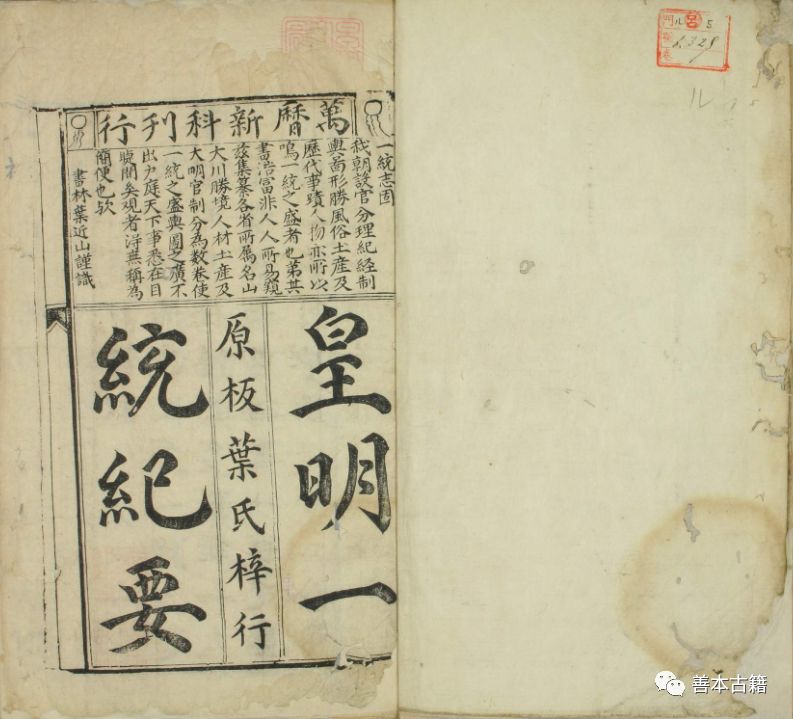 萬曆新科刊行
一統志固
我朝設官分理紀經制
輿啚形勝風俗土産及
歷代事蹟人物亦所以
鳴一統之盛者也第其
書浩富非人人所易窺
兹集纂各省所属名山
大川勝境人材土産及
大明官制分為數卷使
一統之盛輿圖之廣不
出户庭天下事悉在目
睫間矣观者浔無稱為
簡便也欤
書林葉近山謹識
皇明一
原板葉氏梓行
統紀要
門ル5
ル
善本古籍